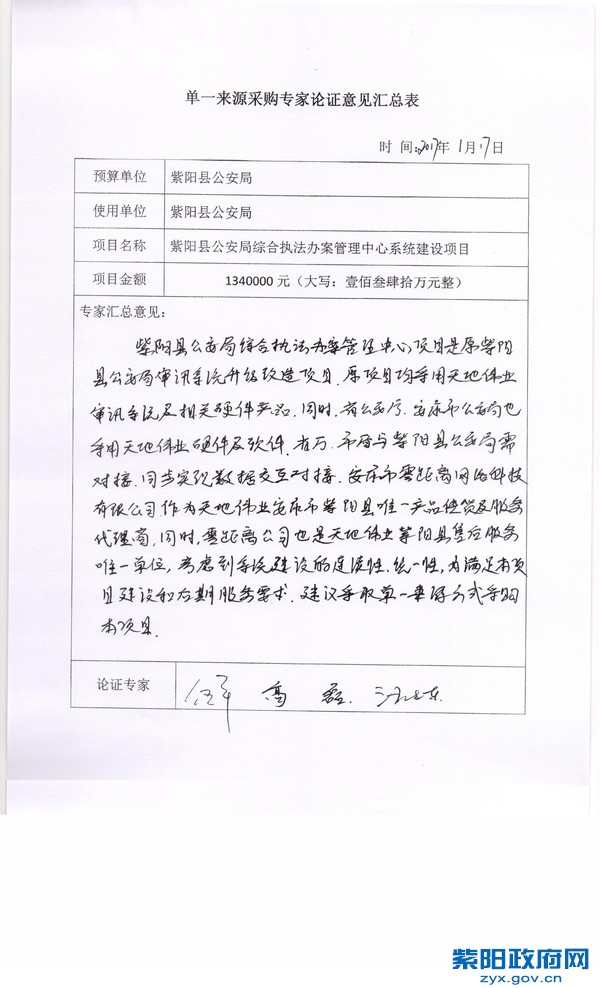 单一来源采购专家论证意见汇总表
时 间:2017年 1月17日
预算单位 紫阳县公安局
使用单位 紫阳县公安局
项目名称 紫阳县公安局综合执法办案管理中心系统建设项目
项目金额 1340000 元（大写：壹佰叁肆拾万元整）
专家汇总意见：
紫阳县公安局综合执法办案管理中心项目是原紫阳
县公安局审讯系统升级改造项目.原项目均采用天地伟业
审讯系统及相关硬件产品.同时,省公安厅、安康市公安局也
采用天地伟业硬件及软件.省厅、市局与紫阳县公安局需
对接.同步实现数据交互对接.安康市零距离网络科技
有限公司作为天地伟业安康市紫阳县唯一产品供货及服务
代理商,同时,零距离公司也是天地伟业紫阳县售后服务
唯一单位,考虑到系统建设的连续性、统一性,为满足本项
目建设和后期服务要求.建议采取单一来源方式采购
本项目.
论证专家
紫阳政府网
zyx.gov.cn